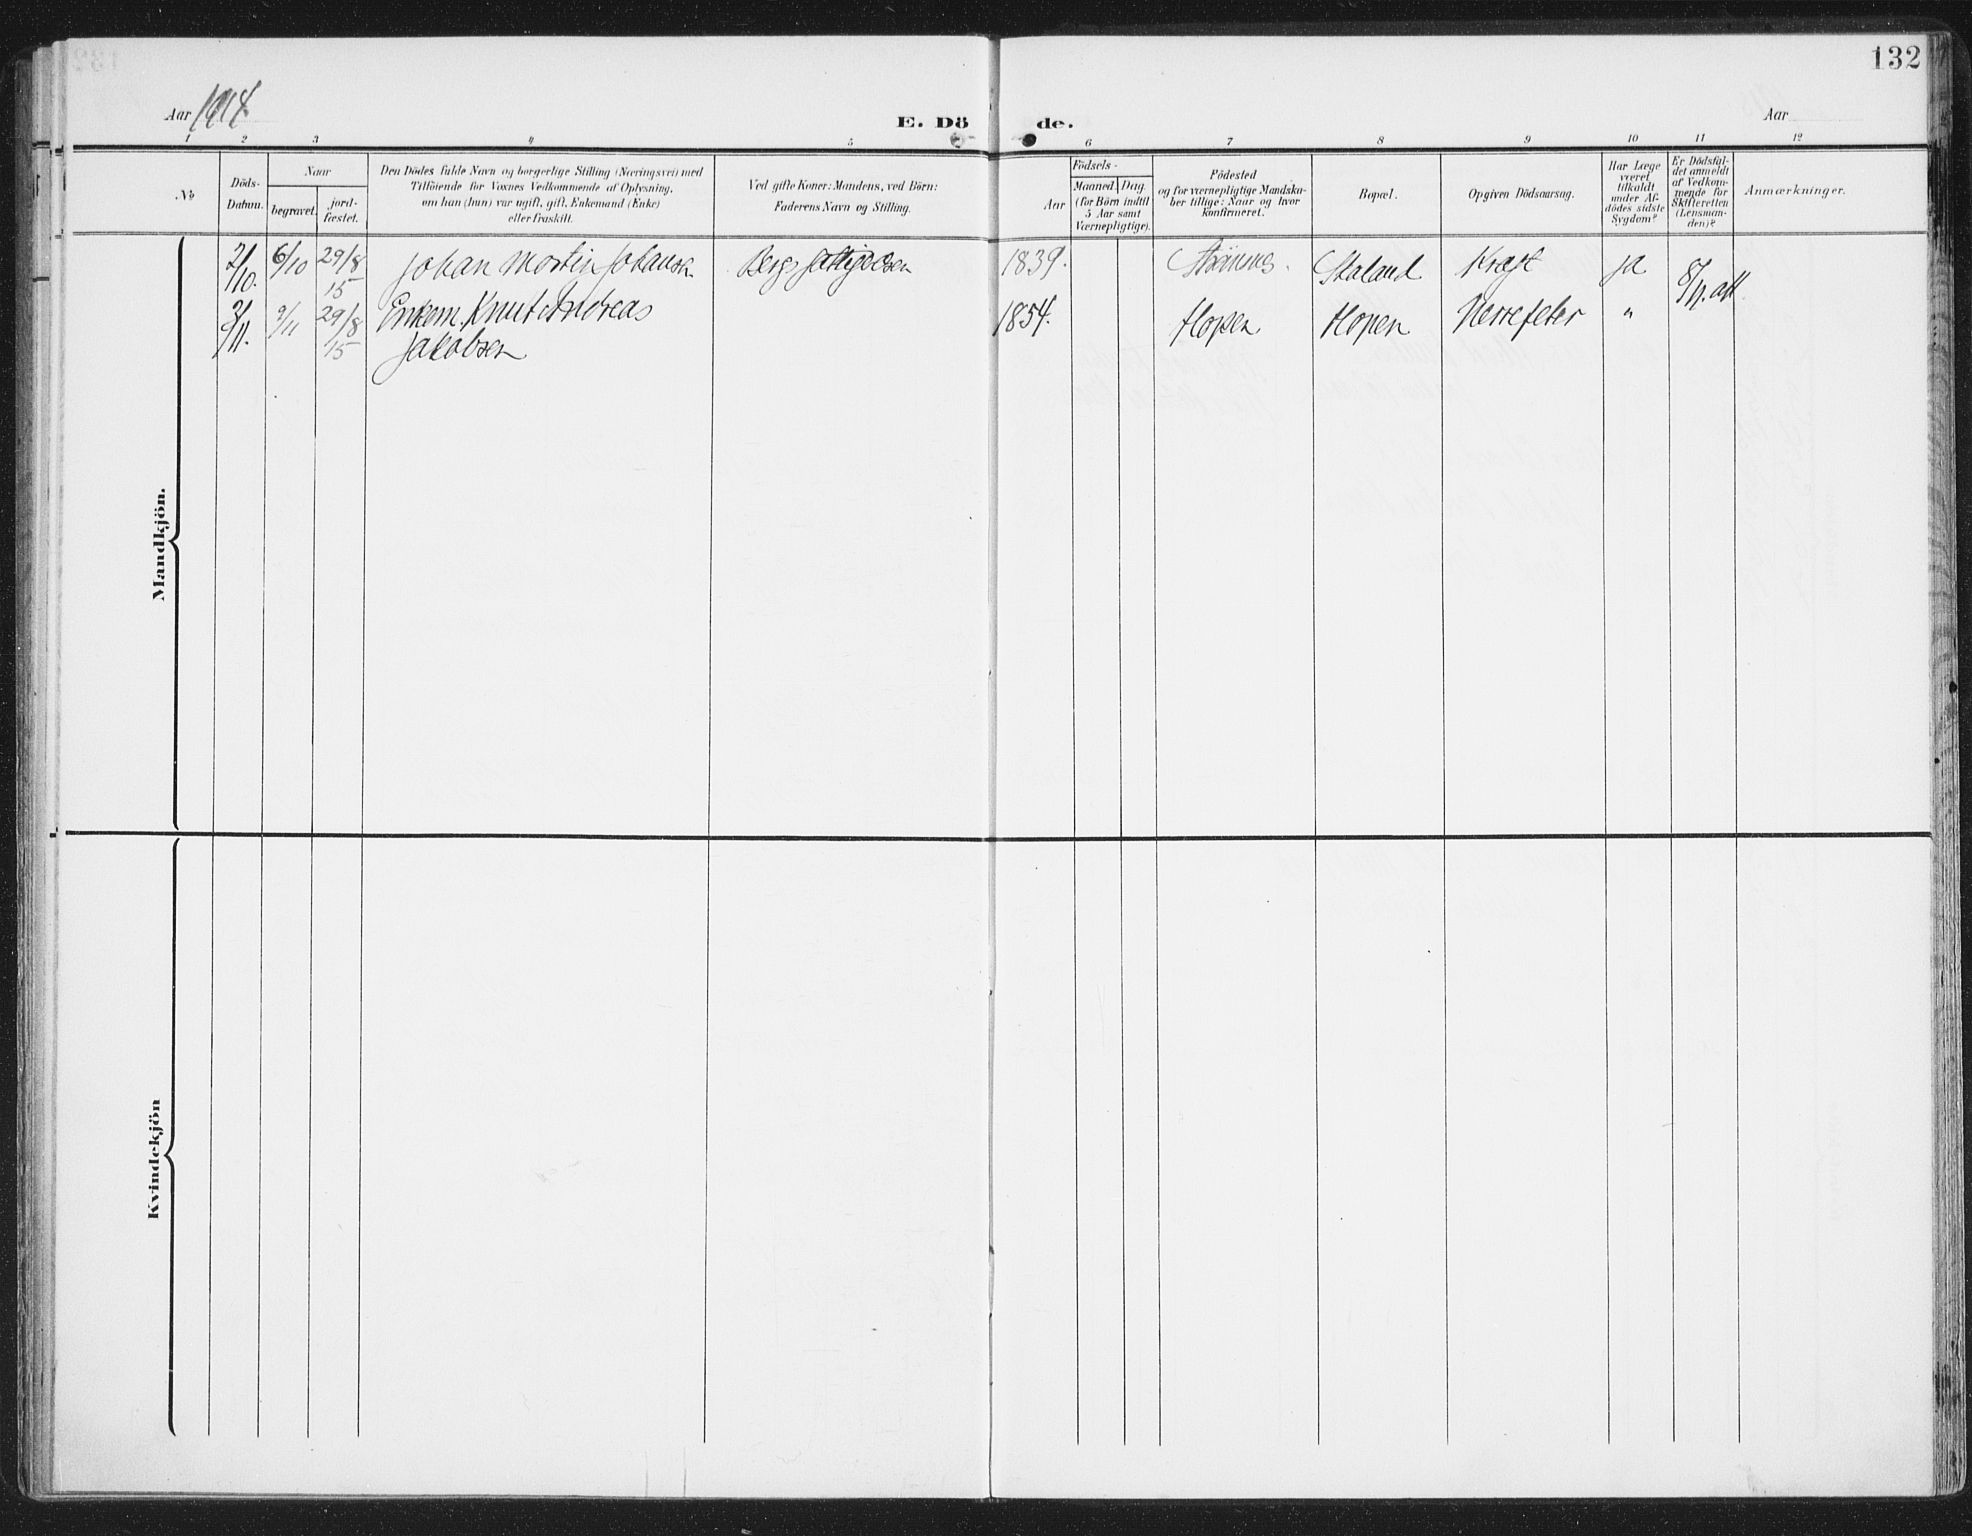 132
Aar 1914
E. Dö de.
Aar
1 2 3 4 5 6 7 8 9 10 11 12
No
Döds-
Datum.
Naar
begravet.
jord-
fæstet.
Den Dödes fulde Navn og borgerlige Stilling (Næringsvei) med
Tilföiende for Voxnes Vedkommende af Oplysning,
om han (hun) var ugift, gift, Enkemand (Enke)
eller fraskilt.
Ved gifte Koner: Mandens, ved Börn:
Faderens Navn og Stilling.
Födsels-
Aar
Maaned. Dag.
(for Börn indtil
5 Aar samt
Værnepligtige).
Födested
og for værnepligtige Mandska-
ber tillige: Naar og hvor
konfirmeret.
Bopæl.
Opgiven Dödsaarsag.
Har Læge
været
tilkaldt
under Af-
dödes sidste
Sygdom?
Er Dödsfal-
det anmeldt
af Vedkom-
mende for
Skifteretten
(Lensman-
den)?
Anmærkninger.
Mandkjön.
2/10. 6/10 29/8 15 Johan Martin Johansen 1839. Staland Kræft ja
9/11 29/8 15 Enkem. Knut Andreas 1854. Hopen Hopen Nervefeber " 8/11. att.
Jakobsen
Kvindekjön